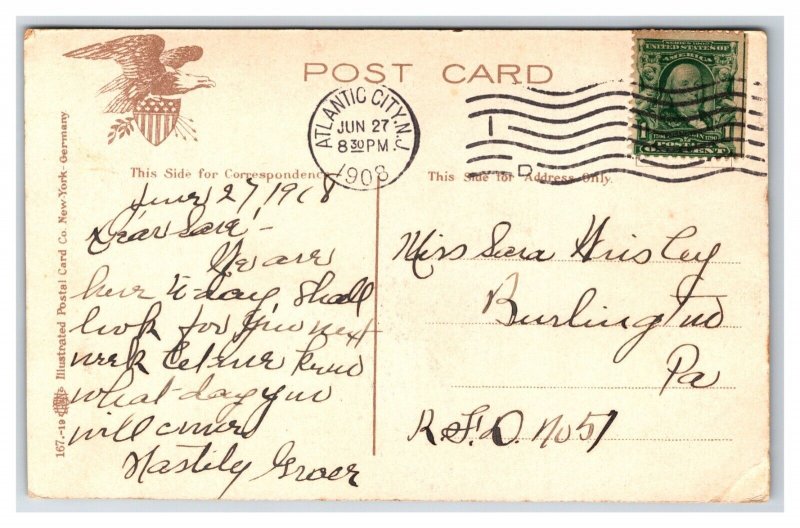 POST CARD
UNITED STATES OF
AMERICA
ATLANTIC CITY, N.J.
JUN 27
8 30 PM
1908
This Side for Correspondence
This Side for Address Only.
167.-19 Illustrated Postal Card Co. New-York-Germany
June 27 1908
Dear Sara! -
We are
here to day, Shall
look for you next
week Let me know
what day you
will come
Hastily
Miss Sara
Burlington
Pa
R. F. D. No 51